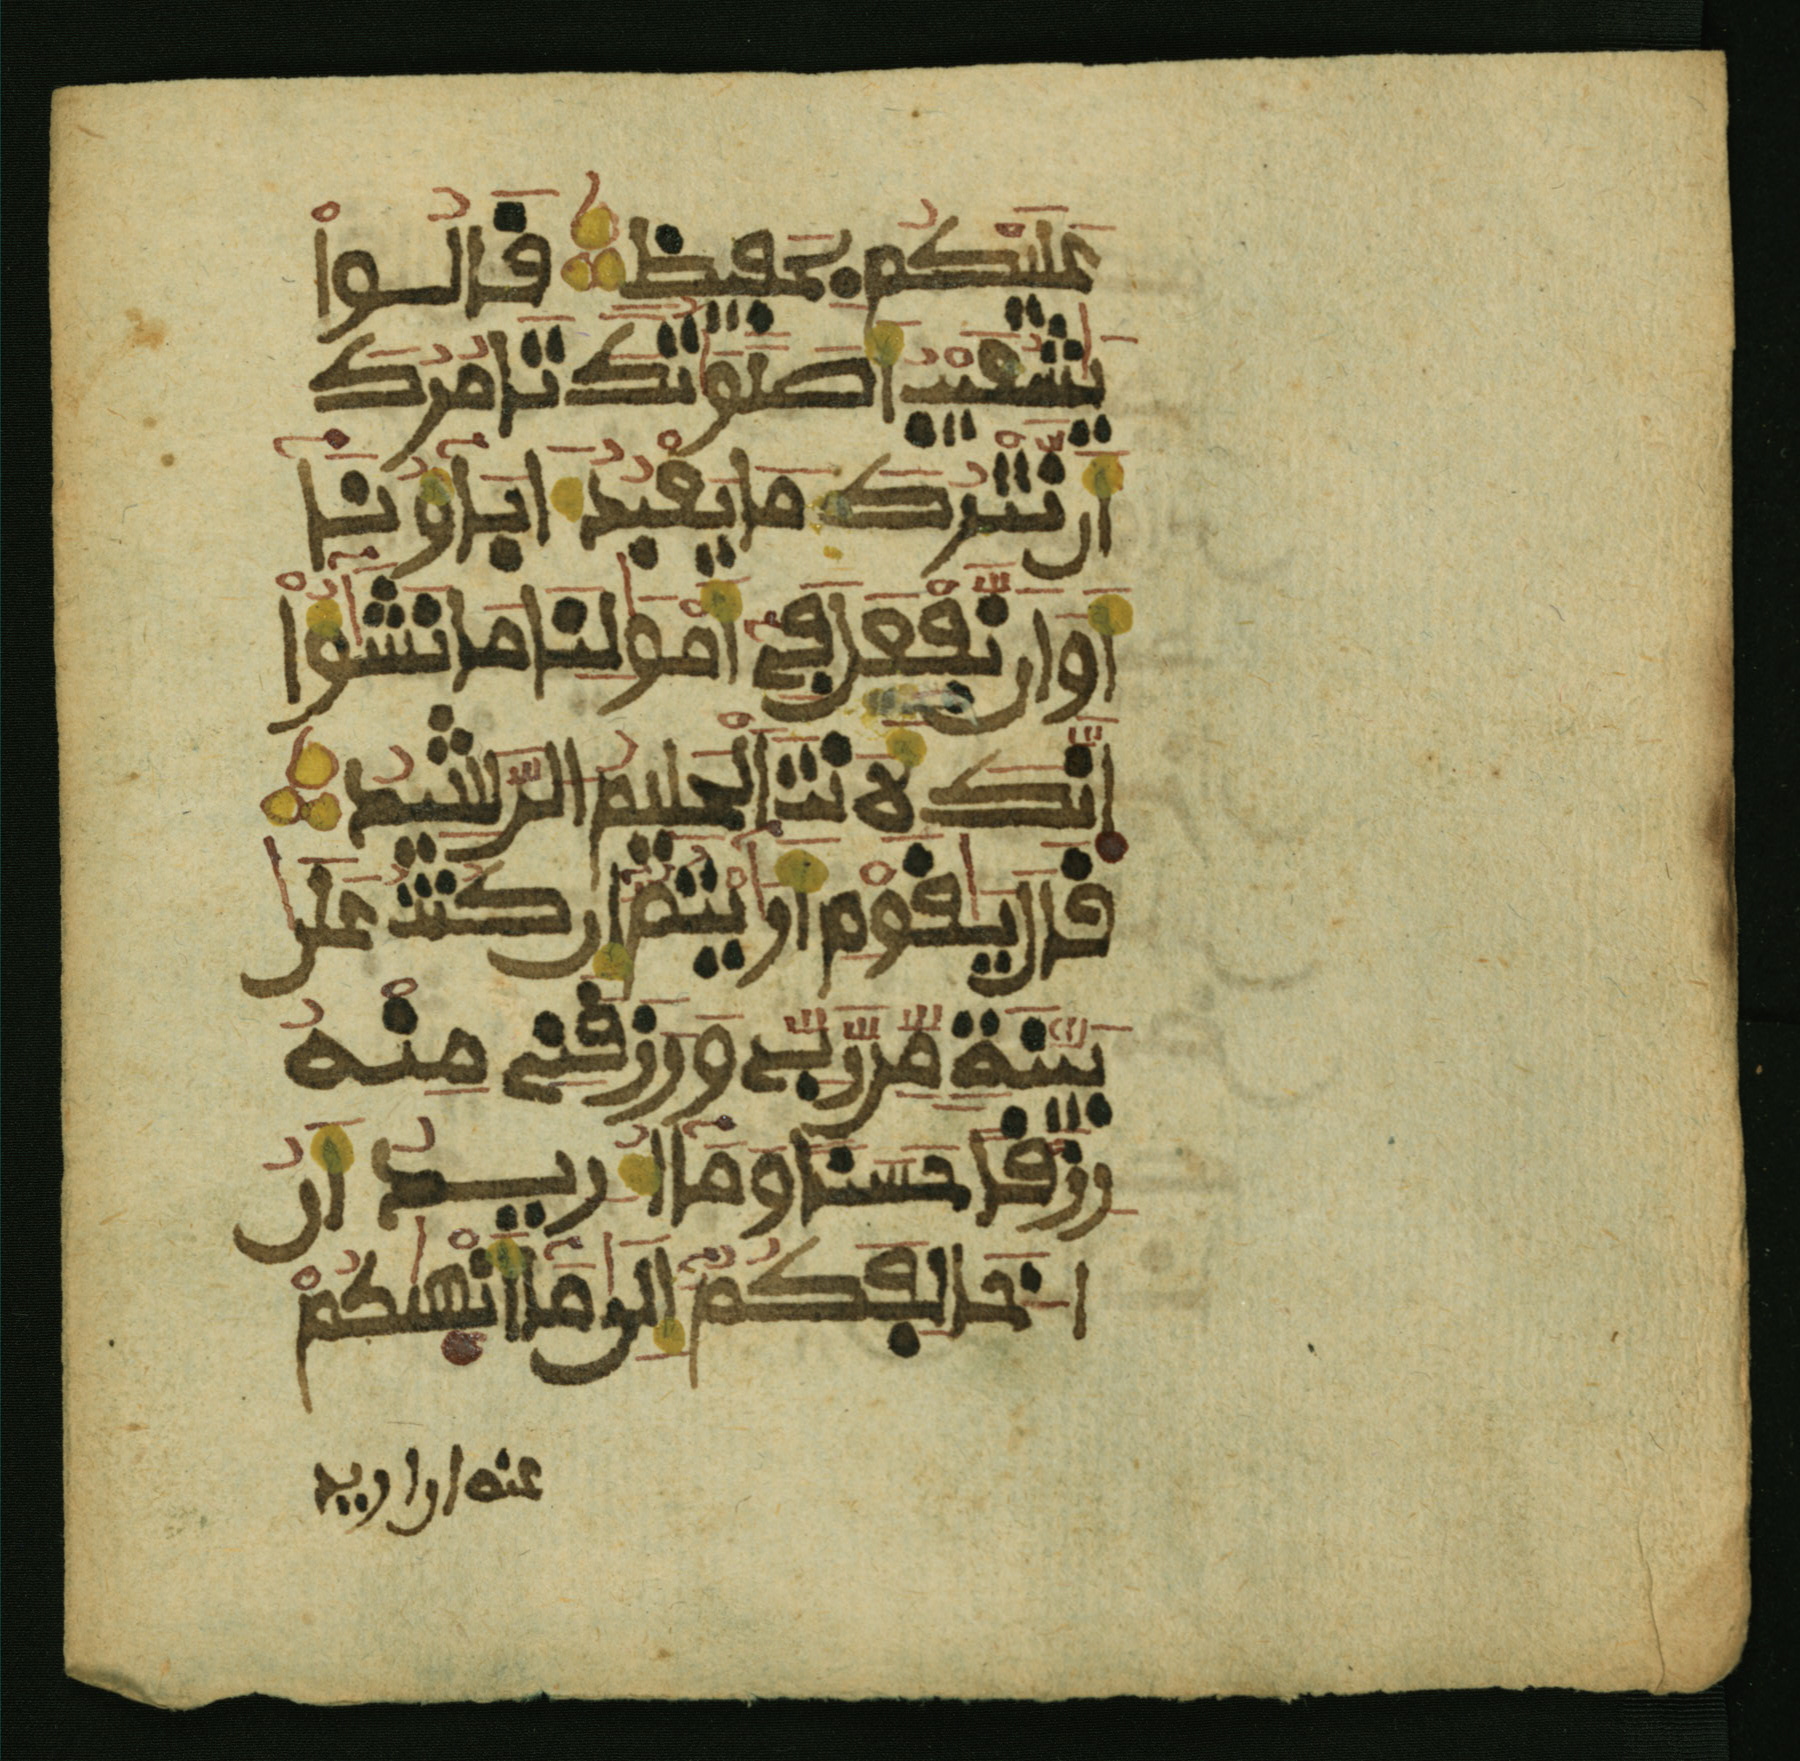 عليكم بحفيظ قالوا
يشعيب اصلوتك تامرك
ان نترك ما يعبد اباؤنا
او ان نفعل في امولنا ما نشؤا
انك لانت الحليم الرشيد
قال يقوم اريتم ان كنت على
بينة من ربي ورزقني منه
رزقا حسنا وما اريد ان
اخالفكم الى ما انهيكم
عنه ان اريد